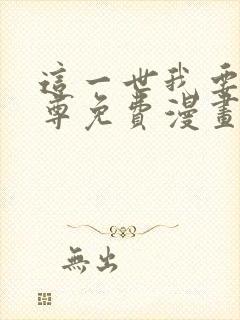 這一世我要
尊免費漫畫
無出